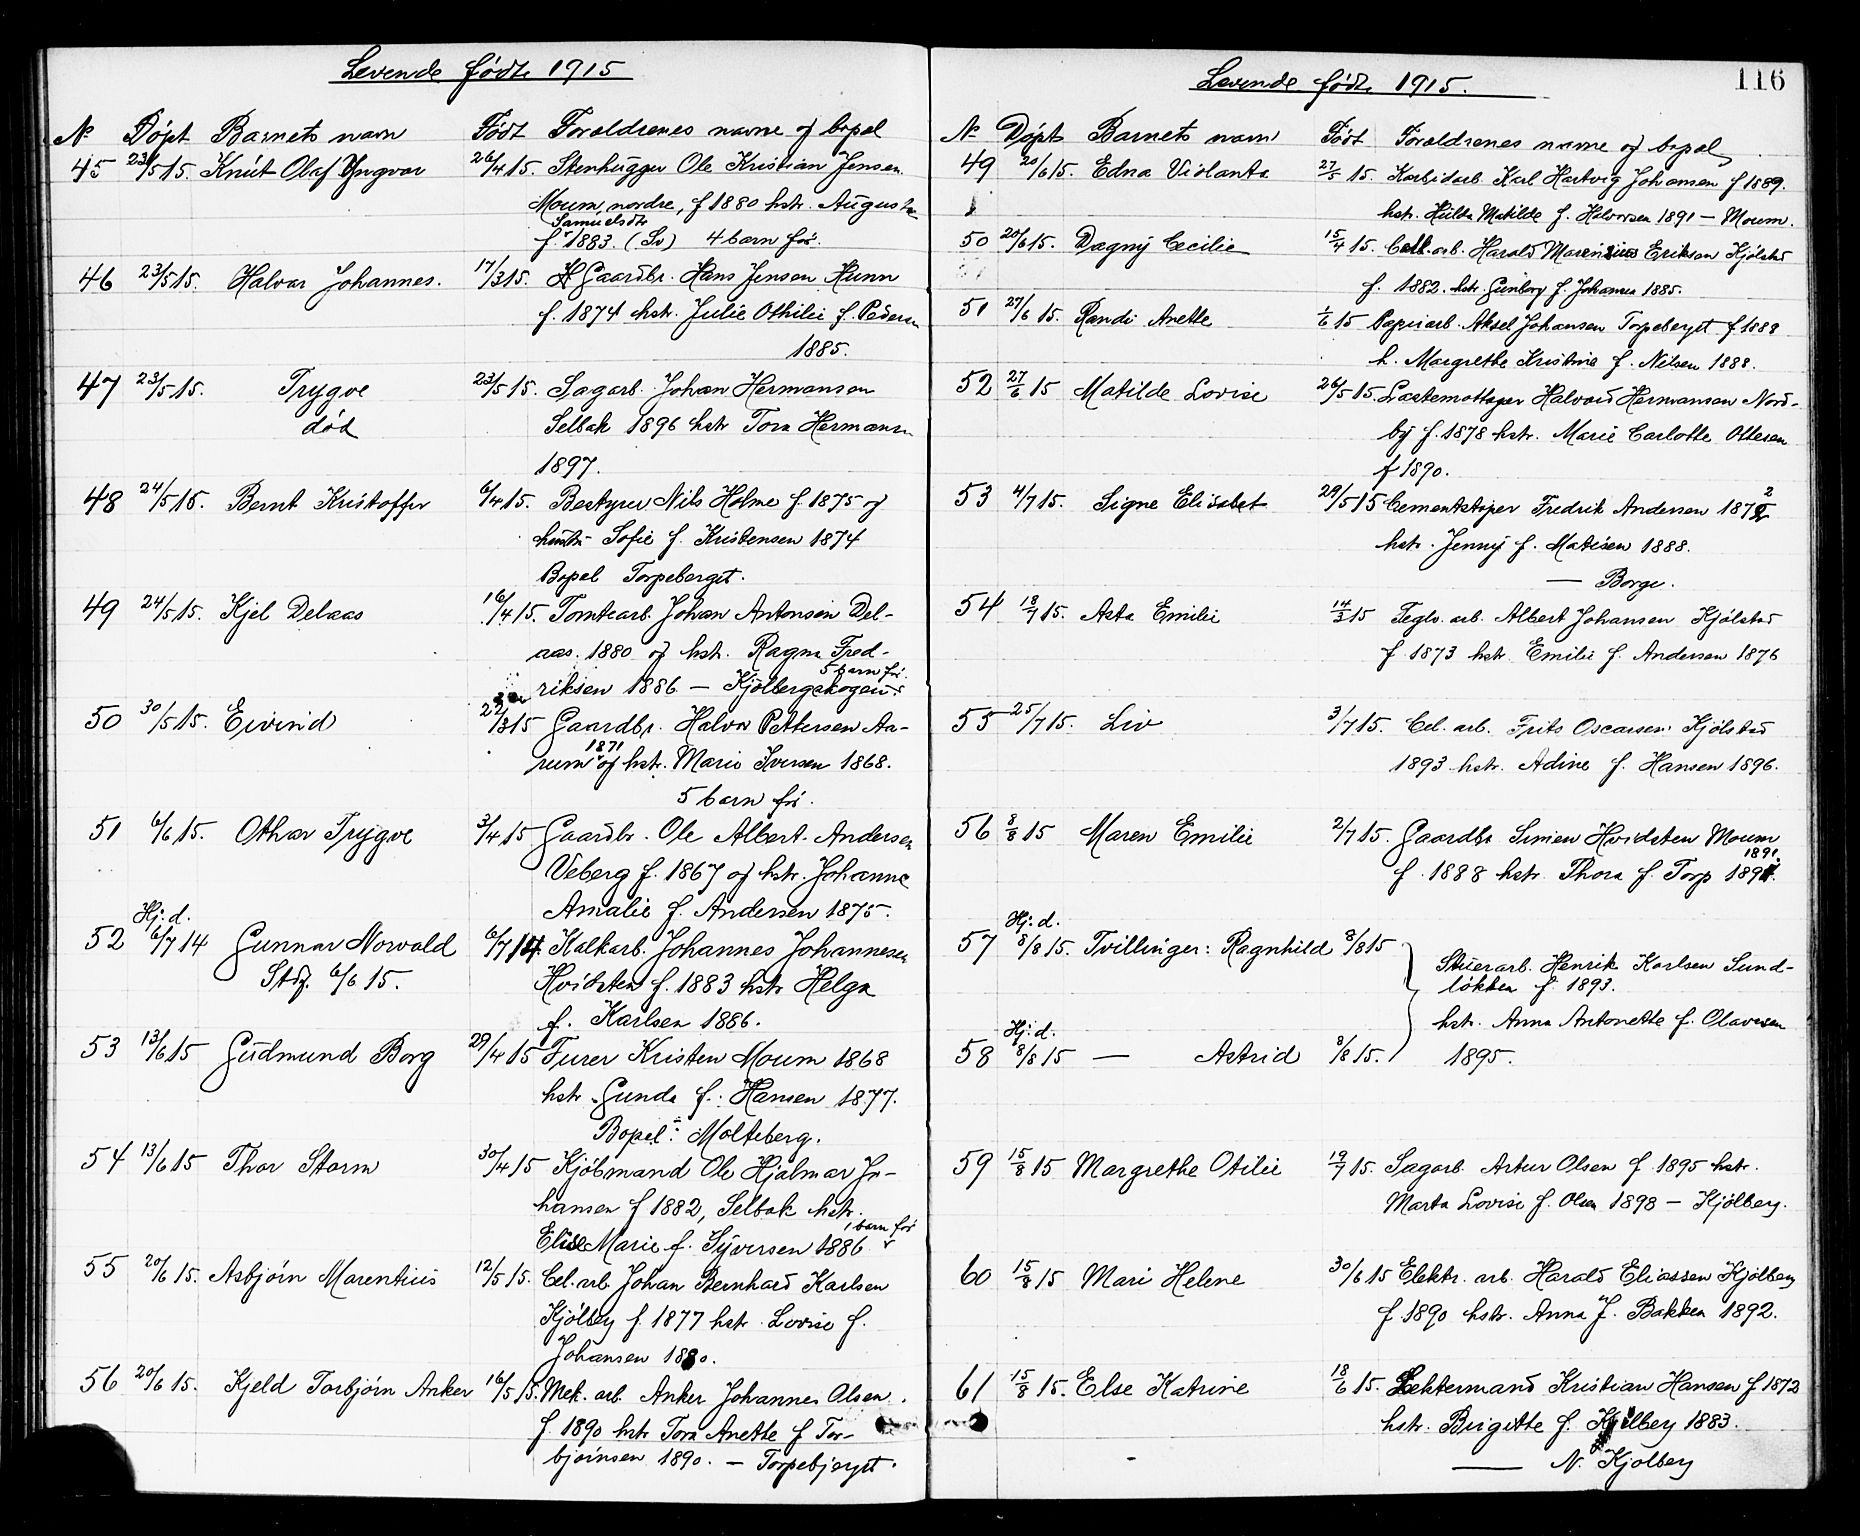 Levende födte 1915
No Döpt Barnets navn Födt Foraldrenes navne og bopal
45 23/5 15. Knut Olaf Yngvar 26/4 15. Stenhugger Ole Kristian Jensen
Moum nordre, f 1880 hstr. Augusta
Samuelsdtr
f. 1883. (Sv) 4 barn för.
46 23/5 15. Halvar Johannes. 17/3 15. Gaardbr. Hans Jensen Hunn
f. 1874 hstr. Julie Othilie f. Pedersen
1885.
47 23/5 15. Trygve 23/5 15. Sagarb. Johan Hermansen
död Selbak 1896 hstr Tora Hermansn
1897.
48 24/5 15. Bernt Kristoffer 6/4 15. Bestyrer Nils Holme f. 1875 og
hustr Sofie f. Kristensen 1874
Bopel Torpeberget.
49 24/5 15. Kjel Delaas 16/4 15. Tomtearb. Johan Antonsen Del-
aas. 1880 og hstr. Ragna Fred-
5 barn för
riksen 1886 — Kjölbergskogen
50 30/5 15. Eivind 22/3 15 Gaardbr. Halvor Pettersen Aa-
1871
rum og hstr. Marie Iversen 1868.
5 barn för.
51 6/6 15. Othar Trygve 3/4 15 Gaardbr. Ole Albert Andersen
Veberg f. 1867 og hstr. Johanne
Amalie f. Andersen 1875.
Hj: d.
52 6/7 14 Gunnar Norvald 6/7 14. Kalkarb. Johannes Johannesen
Stdf. 6/6 15. Hvidsten f. 1883 hstr Helga
f. Karlsen 1886.
53 13/6 15 Gudmund Borg 29/4 15 Furer Kristen Moum 1868
hstr. Gunda f. Hansen 1877.
Bopel: Molteberg.
54 13/6 15 Thor Storm 30/4 15 Kjöbmand Ole Hjalmar Jo-
hansen f 1882, Selbak hstr.
1 barn för
Elise Marie f. Syversen 1886
55 20/6 15. Asbjörn Marentius 12/5 15. Cel. arb. Johan Bernhard Karlsen
Kjölberg f. 1877 hstr. Lovise f.
Johansen 1880.
56 20/6 15. Kjeld Torbjörn Anker 16/5 15. Mek. arb. Anker Johannes Olsen.
f. 1890 hstr Tora Anette f Tor-
björnsen 1890. — Torpebjerget.
Levende födte 1915.
116
No Döpt Barnets navn Födt Foraldrenes navne og bopal
49 20/6 15. Edna Violanta 27/5 15. Karbidarb. Karl Hartvig Johansen f 1889.
hstr. Hulda Matilde f. Halvorsen 1891 — Moum.
50 20/6 15. Dagny Cecilie 15/4 15. Cell. arb. Harald Marenius Eriksen Kjölstad
f. 1882. hstr. Gunborg f. Johansen 1885.
51 27/6 15. Randi Anette 1/6 15 Papirarb. Aksel Johansen Torpeberget f. 1888
h. Margrethe Kristine f. Nilsen 1888.
52 27/6 15 Matilde Lovise 26/5 15. Lastemottager Halvard Hermansen Nord-
by f. 1878 hstr. Marie Carlotte Ottesen
f 1890.
53 4/7 15. Signe Elisabet 29/5 15 Cementstöper Fredrik Andersen 1872
hstr. Jenny f. Matisen 1888.
— Borge.
54 18/7 15. Asta Emilie 14/3 15 Teglv. arb. Albert Johansen Kjölstad
f 1873 hstr. Emilie f. Andersen 1876
55 25/7 15. Liv 3/7 15. Cel. arb. Frits Oscarsen Kjölstad
1893 hstr. Adine f. Hansen 1896.
56 8/8 15 Maren Emilie 2/7 15. Gaardbr Simen Hvidsten Moum
1891.
f. 1888 hstr. Thora f. Torp
Hj: d.
57 8/8 15. Tvillinger: Ragnhild 8/8 15
Stuerarb. Henrik Karlsen Sund-
lökken f 1893.
hstr. Anna Antonette f. Olavesen
Hj: d.
58 8/8 15 — Astrid 8/8 15. 1895.
59 15/8 15 Margrethe Otilie 19/7 15. Sagarb. Artur Olsen f. 1895 hstr.
Marta Lovise f. Olsen 1898 — Kjölberg.
60 15/8 15 Mari Helene 30/6 15 Elektr. arb. Harald Eliassen Kjölberg
f. 1890 hstr. Anna f. Bakken 1892.
61 15/8 15. Else Katrine 18/6 15. Lektermand Kristian Hansen f 1872
hstr. Birgitte f. Kjölberg 1883.
— N. Kjölberg